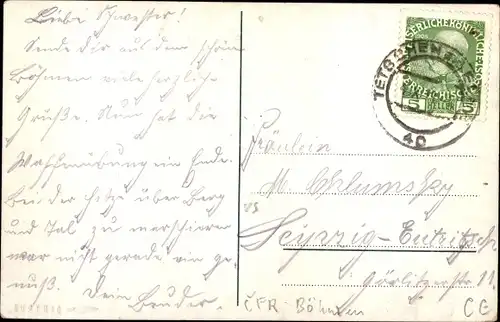 Liebe Schwester!
Sende Dir aus dem schönen
Böhmen viele herzliche
Grüße. Nun hat die
Waffenübung ein Ende.
Bei der Hitze über Berg
und Tal zu marschieren
war nicht gerade ein ge-
nuß. Dein
Bruder.
KAISERLICHE KÖNIGLICHE
ÖSTERREICHISCHE
5 HELLER 5
TETSCHEN
4c
Fräulein
M. Chlumsky
Leipzig-Eutritzsch
Görlitzerstr 11
ČFR Böhmen
CE